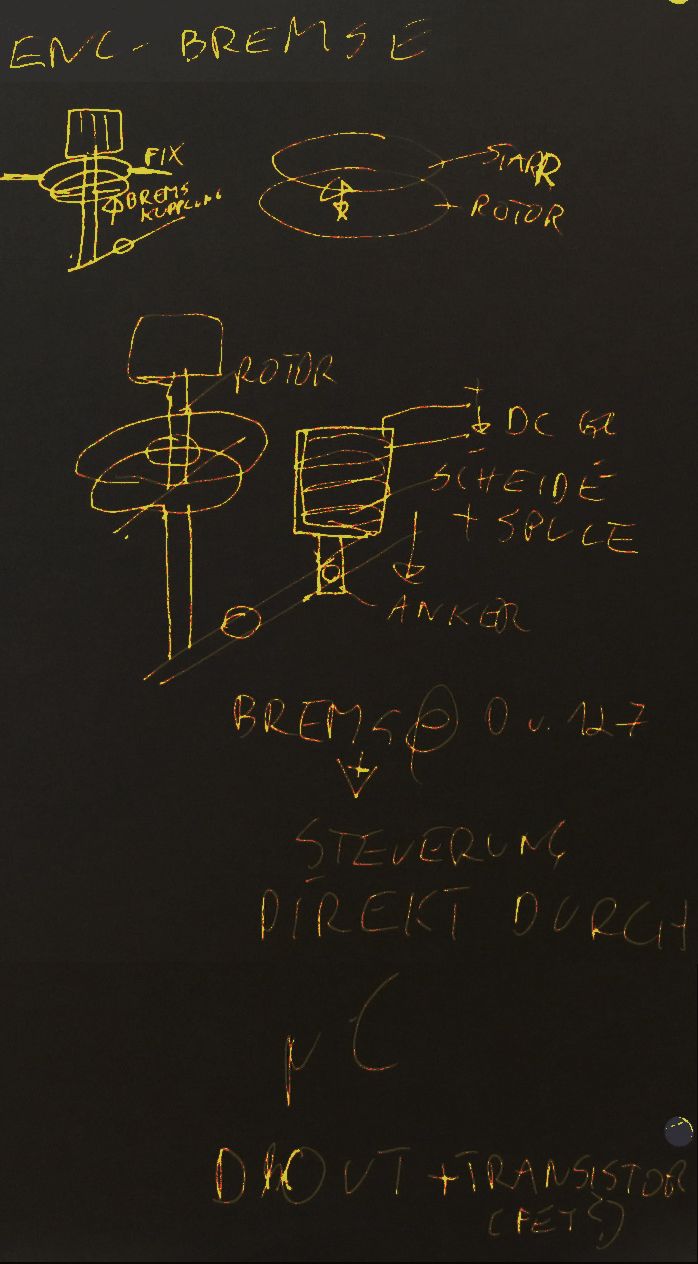 ENC-BREMSE
FIX
BREMS
KUPPLUNG
STARR
ROTOR
ROTOR
+
DC
-
SCHEIDE
+ SPULE
ANKER
BREMSE @ 0 u. 127
+
STEUERUNG
DIREKT DURCH
µC
OUT + TRANSISTOR
(FET?)